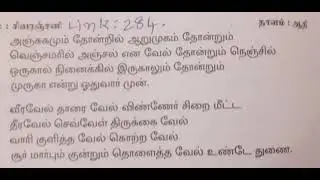 : சிவரஞ்சனி பாடல்: 284. தாளம் : ஆதி
அஞ்சுகமும் தோன்றில் ஆறுமுகம் தோன்றும்
வெஞ்சமரில் அஞ்சல் என வேல் தோன்றும் நெஞ்சில்
ஒருகால் நினைக்கில் இருகாலும் தோன்றும்
முருகா என்று ஓதுவார் முன்.
வீரவேல் தாரை வேல் விண்ணோர் சிறை மீட்ட
தீரவேல் செவ்வேள் திருக்கை வேல்
வாரி குளித்த வேல் கொற்ற வேல்
சூர் மார்பும் குன்றும் தொளைத்த வேல் உண்டே துணை.